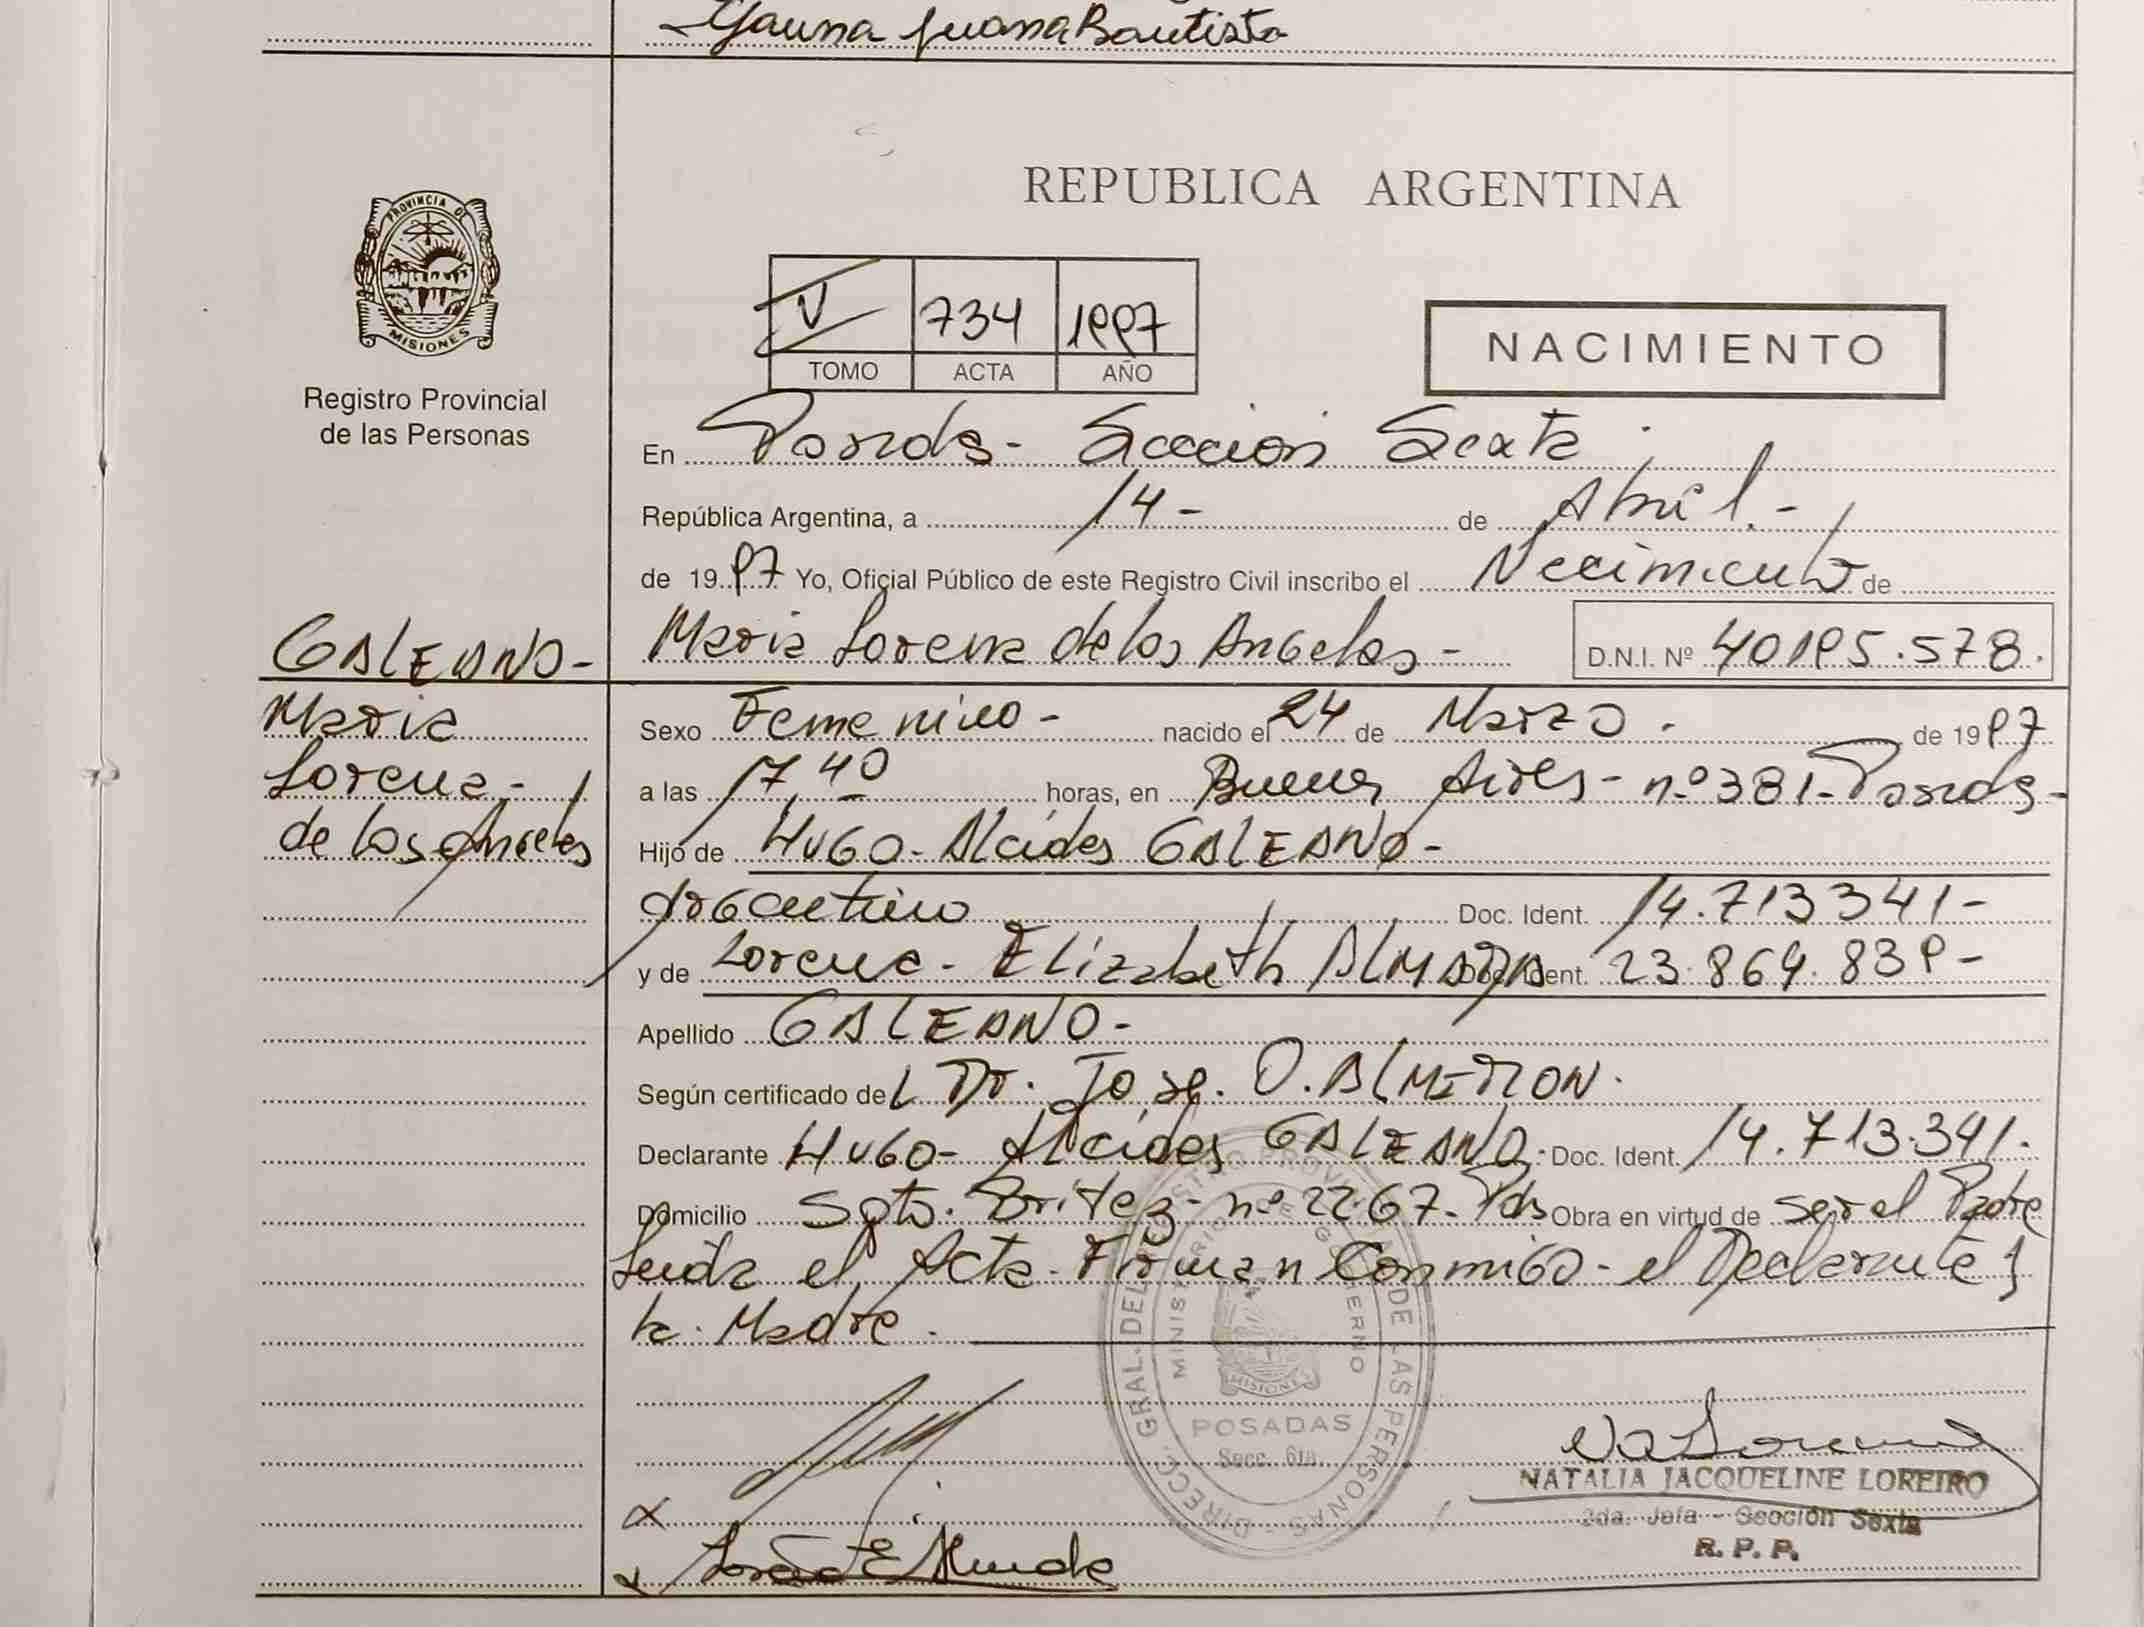 Gauna Juana Bautista
PROVINCIA DE
MISIONES
Registro Provincial
de las Personas
REPUBLICA ARGENTINA
V 734 1997
TOMO ACTA AÑO
NACIMIENTO
En Posadas - Seccion Sexta
República Argentina, a 14 - de Abril. -
de 1997 Yo, Oficial Público de este Registro Civil inscribo el Necimiento de
Maria Lorena de los Angeles - D.N.I. Nº 40195.578.
GALEANO -
Maria
Lorena -
de los Angeles
Sexo Femenino - nacido el 24 de Marzo . de 1997
a las 17,40 horas, en Buenos Aires - nº 381 - Posadas -
Hijo de HUGO - Alcides GALEANO -
Argentino Doc. Ident. 14.713341 -
y de Lorena - Elizabeth Doc. Ident. 23.864.839 -
Apellido GALEANO -
Según certificado del Dr. Jose. O. ALMIRON.
Declarante HUGO - Alcides GALEANO. Doc. Ident. 14.713.341.
Domicilio Sgto. Britez - nº 2267. Pds Obra en virtud de ser el Padre
Leida el Acta. Firman Conmigo - el Declarante y
la Madre.
DIRECC. GRAL. DEL REGISTRO PROVINCIAL DE LAS PERSONAS
MINISTERIO DE GOBIERNO
MISIONES
POSADAS
Secc. 6ta.
NATALIA JACQUELINE LOREIRO
2da. Jefa - Sección Sexta
R. P. P.